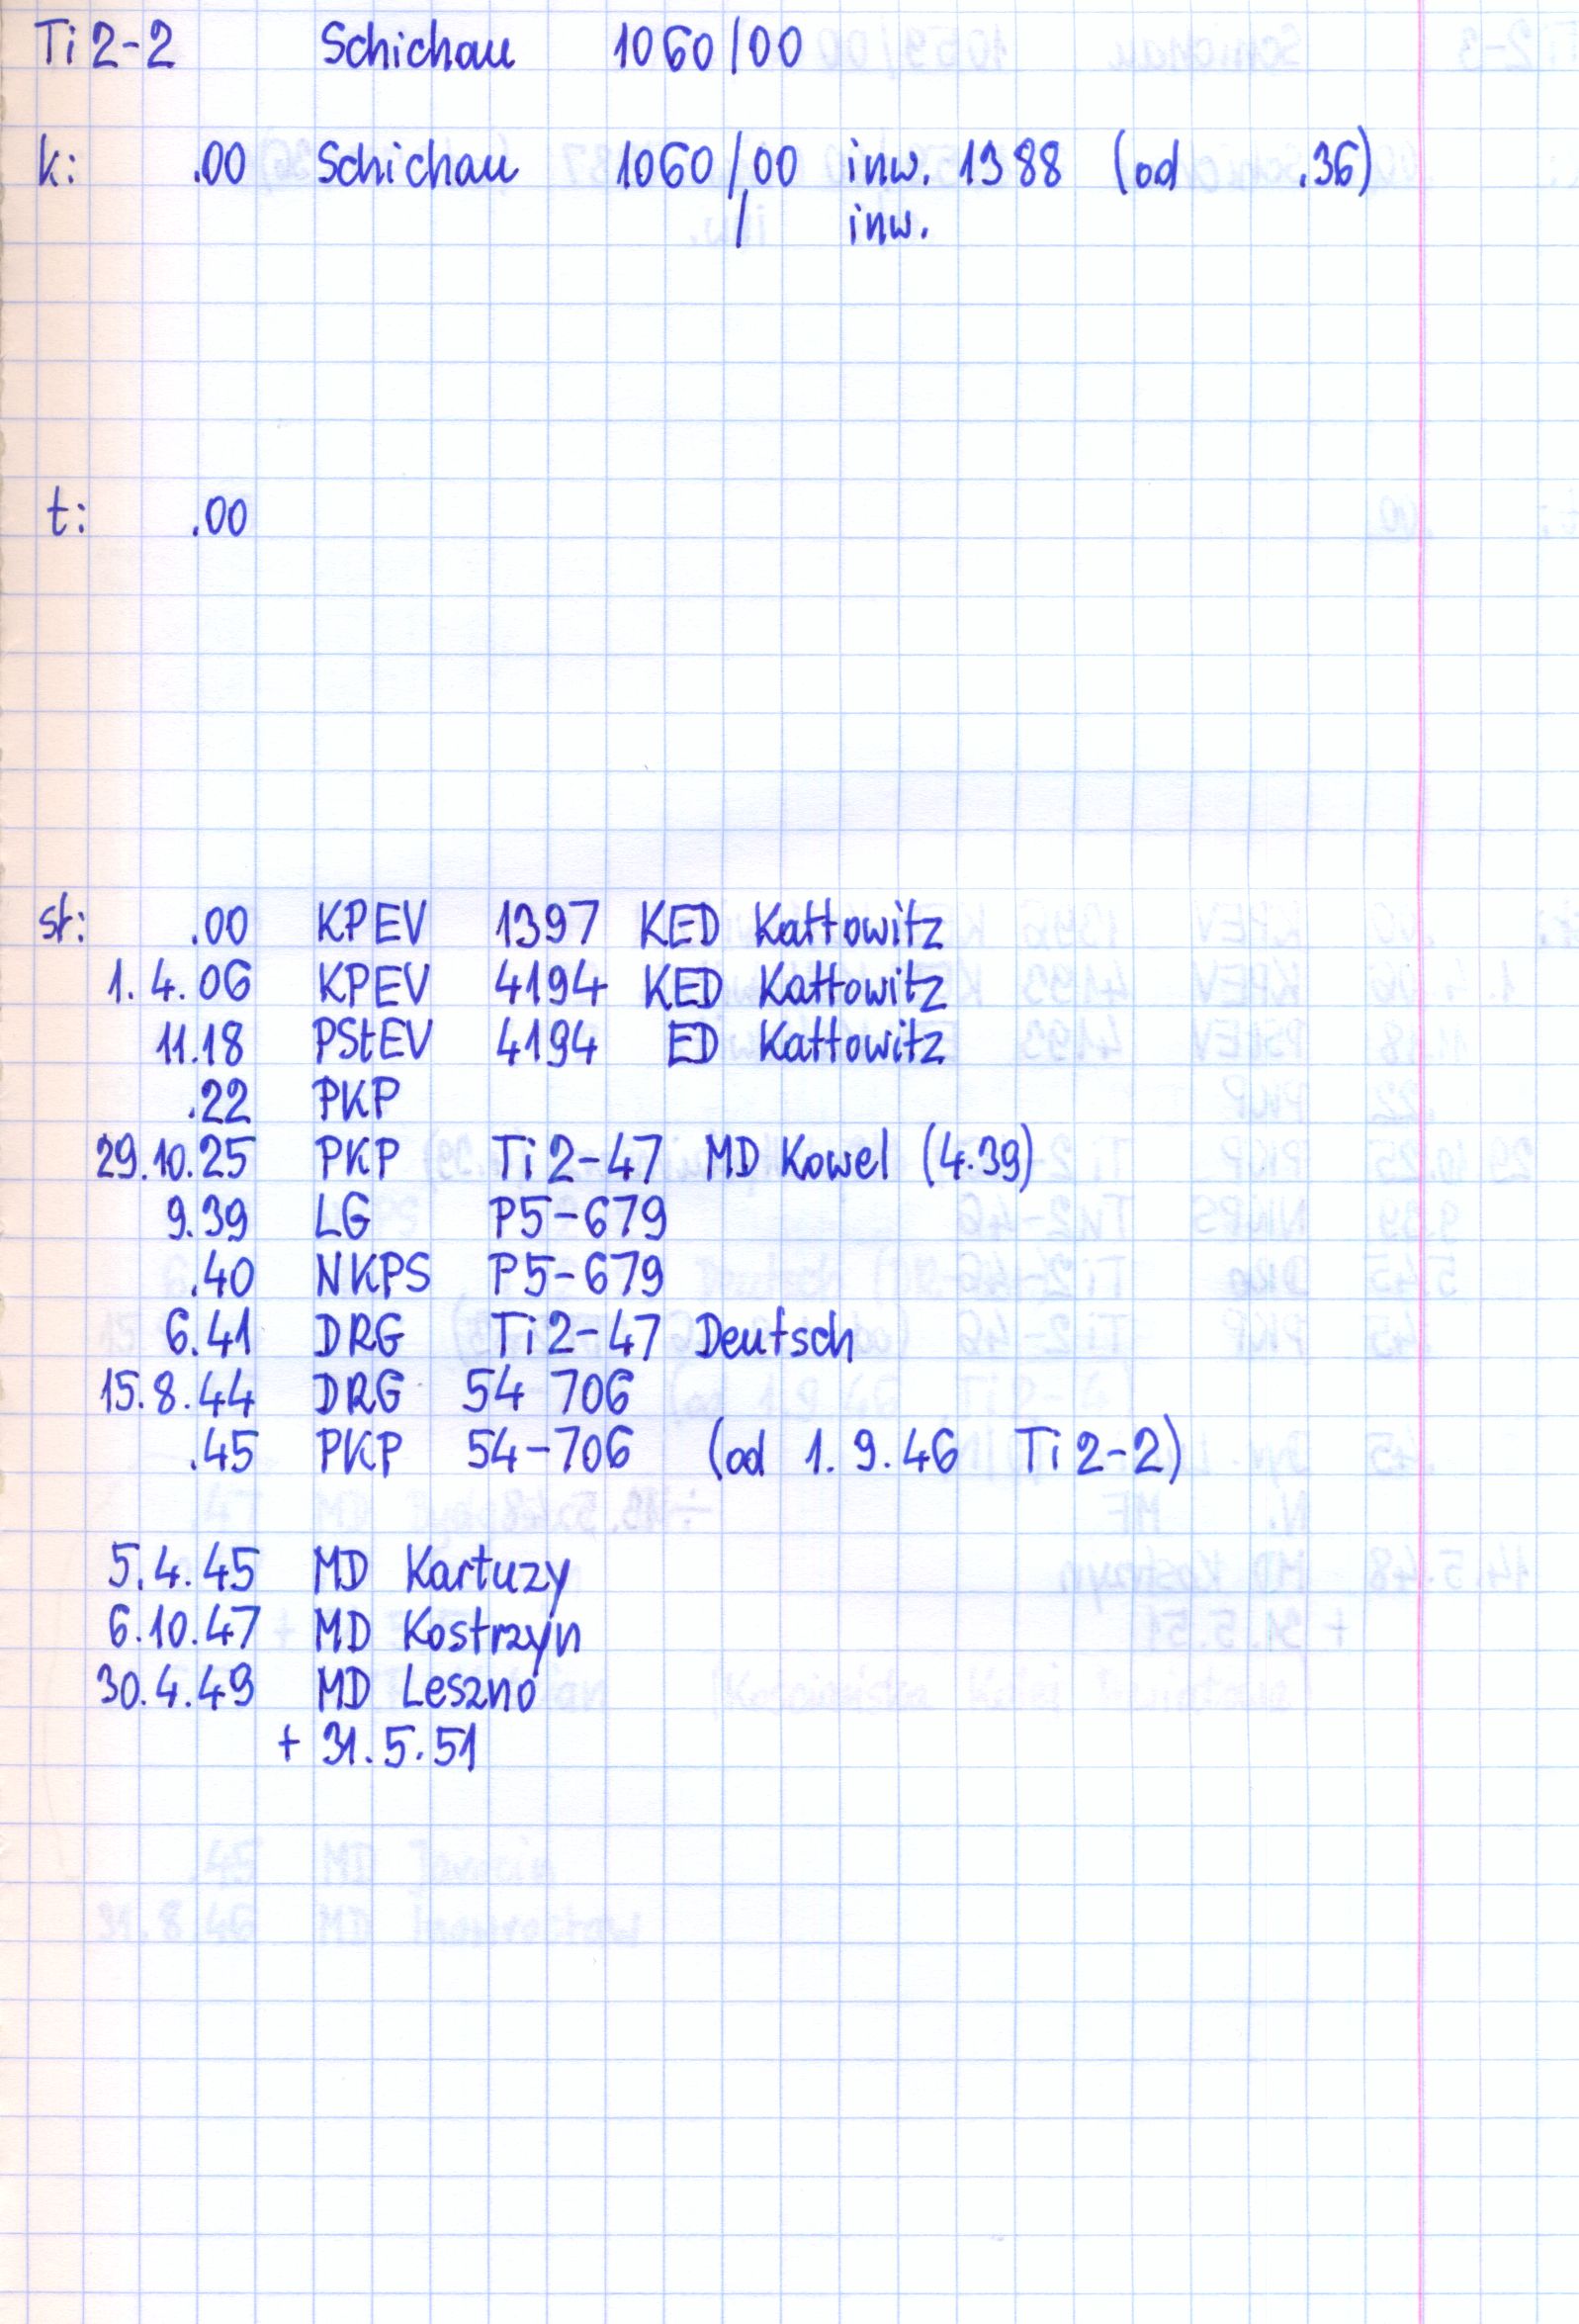 Ti2-2 Schichau 1060/00
k: .00 Schichau 1060/00 inw. 1388 (od .36)
/ inw.
t: .00
st: .00 KPEV 1397 KED Kattowitz
1.4.06 KPEV 4194 KED Kattowitz
11.18 PStEV 4194 ED Kattowitz
.22 PKP
29.10.25 PKP Ti2-47 MD Kowel (4.39)
9.39 LG P5-679
.40 NKPS P5-679
6.41 DRG Ti2-47 Deutsch
15.8.44 DRG 54 706
.45 PKP 54-706 (od 1.9.46 Ti2-2)
5.4.45 MD Kartuzy
6.10.47 MD Kostrzyn
30.4.49 MD Leszno
+ 31.5.51